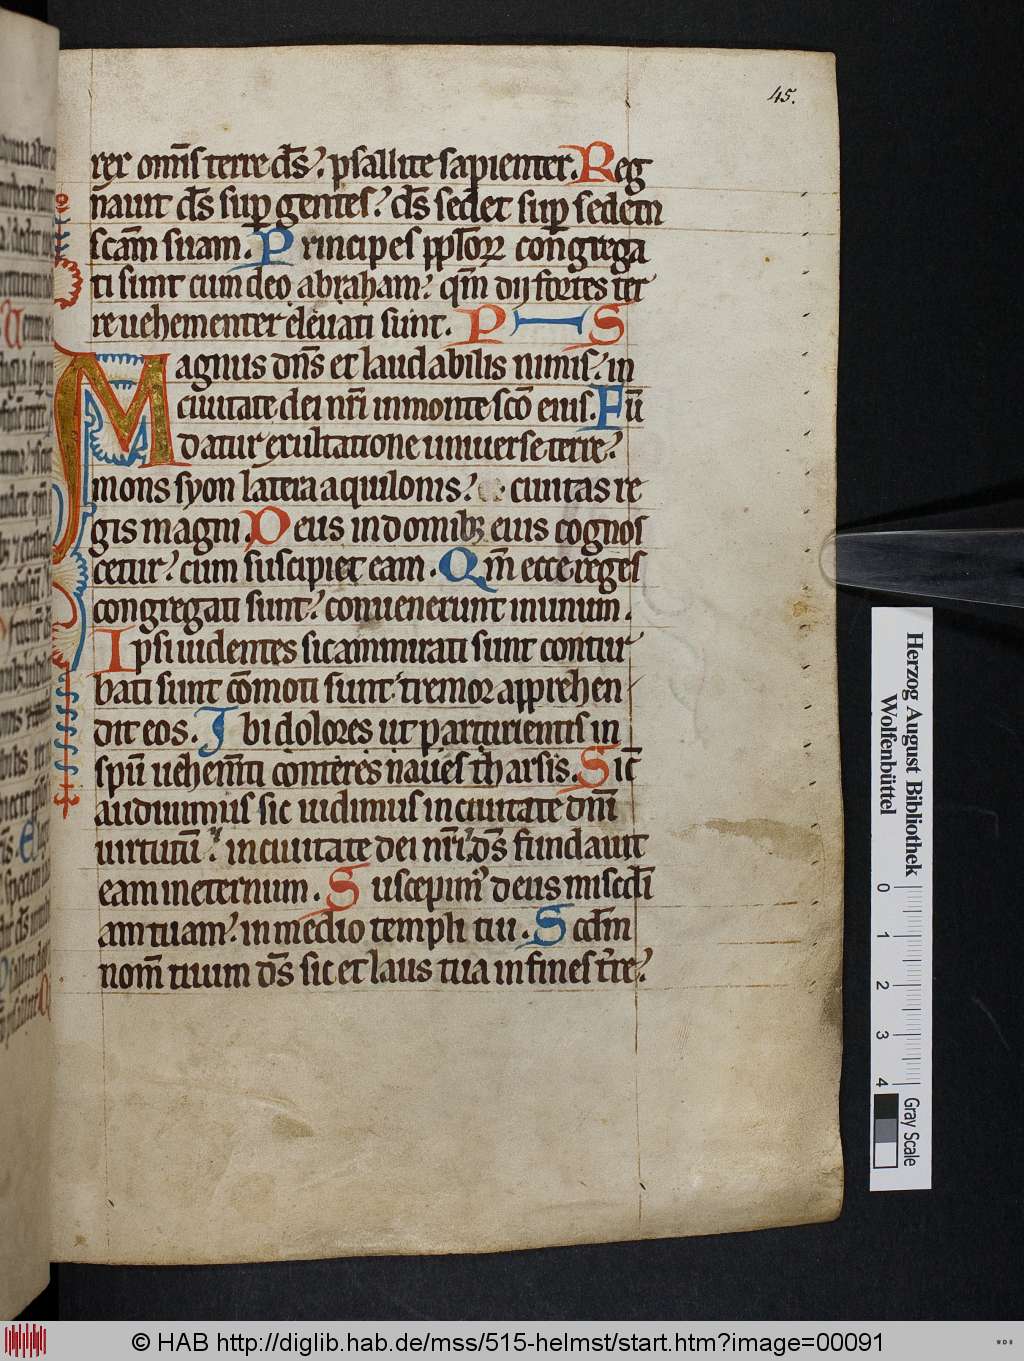 45.
rex om̄is terre ds̄? psallite sapienter. Reg
nauit ds̄ suꝑ gentes? ds̄ sedet suꝑ sedem
scām suam. Principes pp̄lorꝝ congrega
ti sunt cum deo abraham? qm̄ dij fortes ter
re uehementer eleuati sunt. P S
Magnus dn̄s et laudabilis nimis? in
ciuitate dei nr̄i in monte scō eius. Fū
datur exultatione uniuerse terre?
mons syon latera aquilonis? ciuitas re
gis magni. Deus in domibꝫ eius cognos
cetur? cum suscipiet eam. Qm̄ ecce reges
congregati sunt? conuenerunt in unum.
Ipsi uidentes sic ammirati sunt contur
bati sunt cōmoti sunt? tremor apprehen
dit eos. Ibi dolores ut parturientis in
spū uehem̄ti conteres naues tharsis. Sic̄
audiuimus sic uidimus in ciuitate dn̄i
uirtutū? in ciuitate dei nr̄i ds̄ fundauit
eam in eternum. Suscepim᷒ deus misc̄di
am tuam? in medio templi tui. Scd̄m
nom̄ tuum ds̄ sic et laus tua in fines tr̄re?
Herzog August Bibliothek
Wolfenbüttel
0 1 2 3 4
Gray Scale
© HAB http://diglib.hab.de/mss/515-helmst/start.htm?image=00091